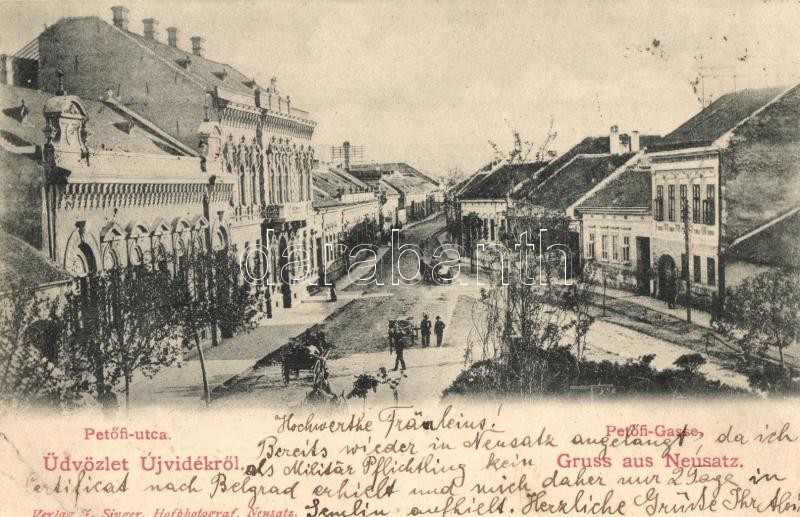 darabanth
Petőfi-utca.
Petőfi-Gasse.
Üdvözlet Újvidékről.
Gruss aus Neusatz.
Hochwerthe Fräuleins!
Bereits wieder in Neusatz angelangt, da ich
als Militär Pflichtling kein
Certificat nach Belgrad erhielt und mich daher nur 2 Tage in
Semlin aufhielt. Herzliche Grüße Ihr
Verlag J. Singer, Hofphotograf, Neusatz.